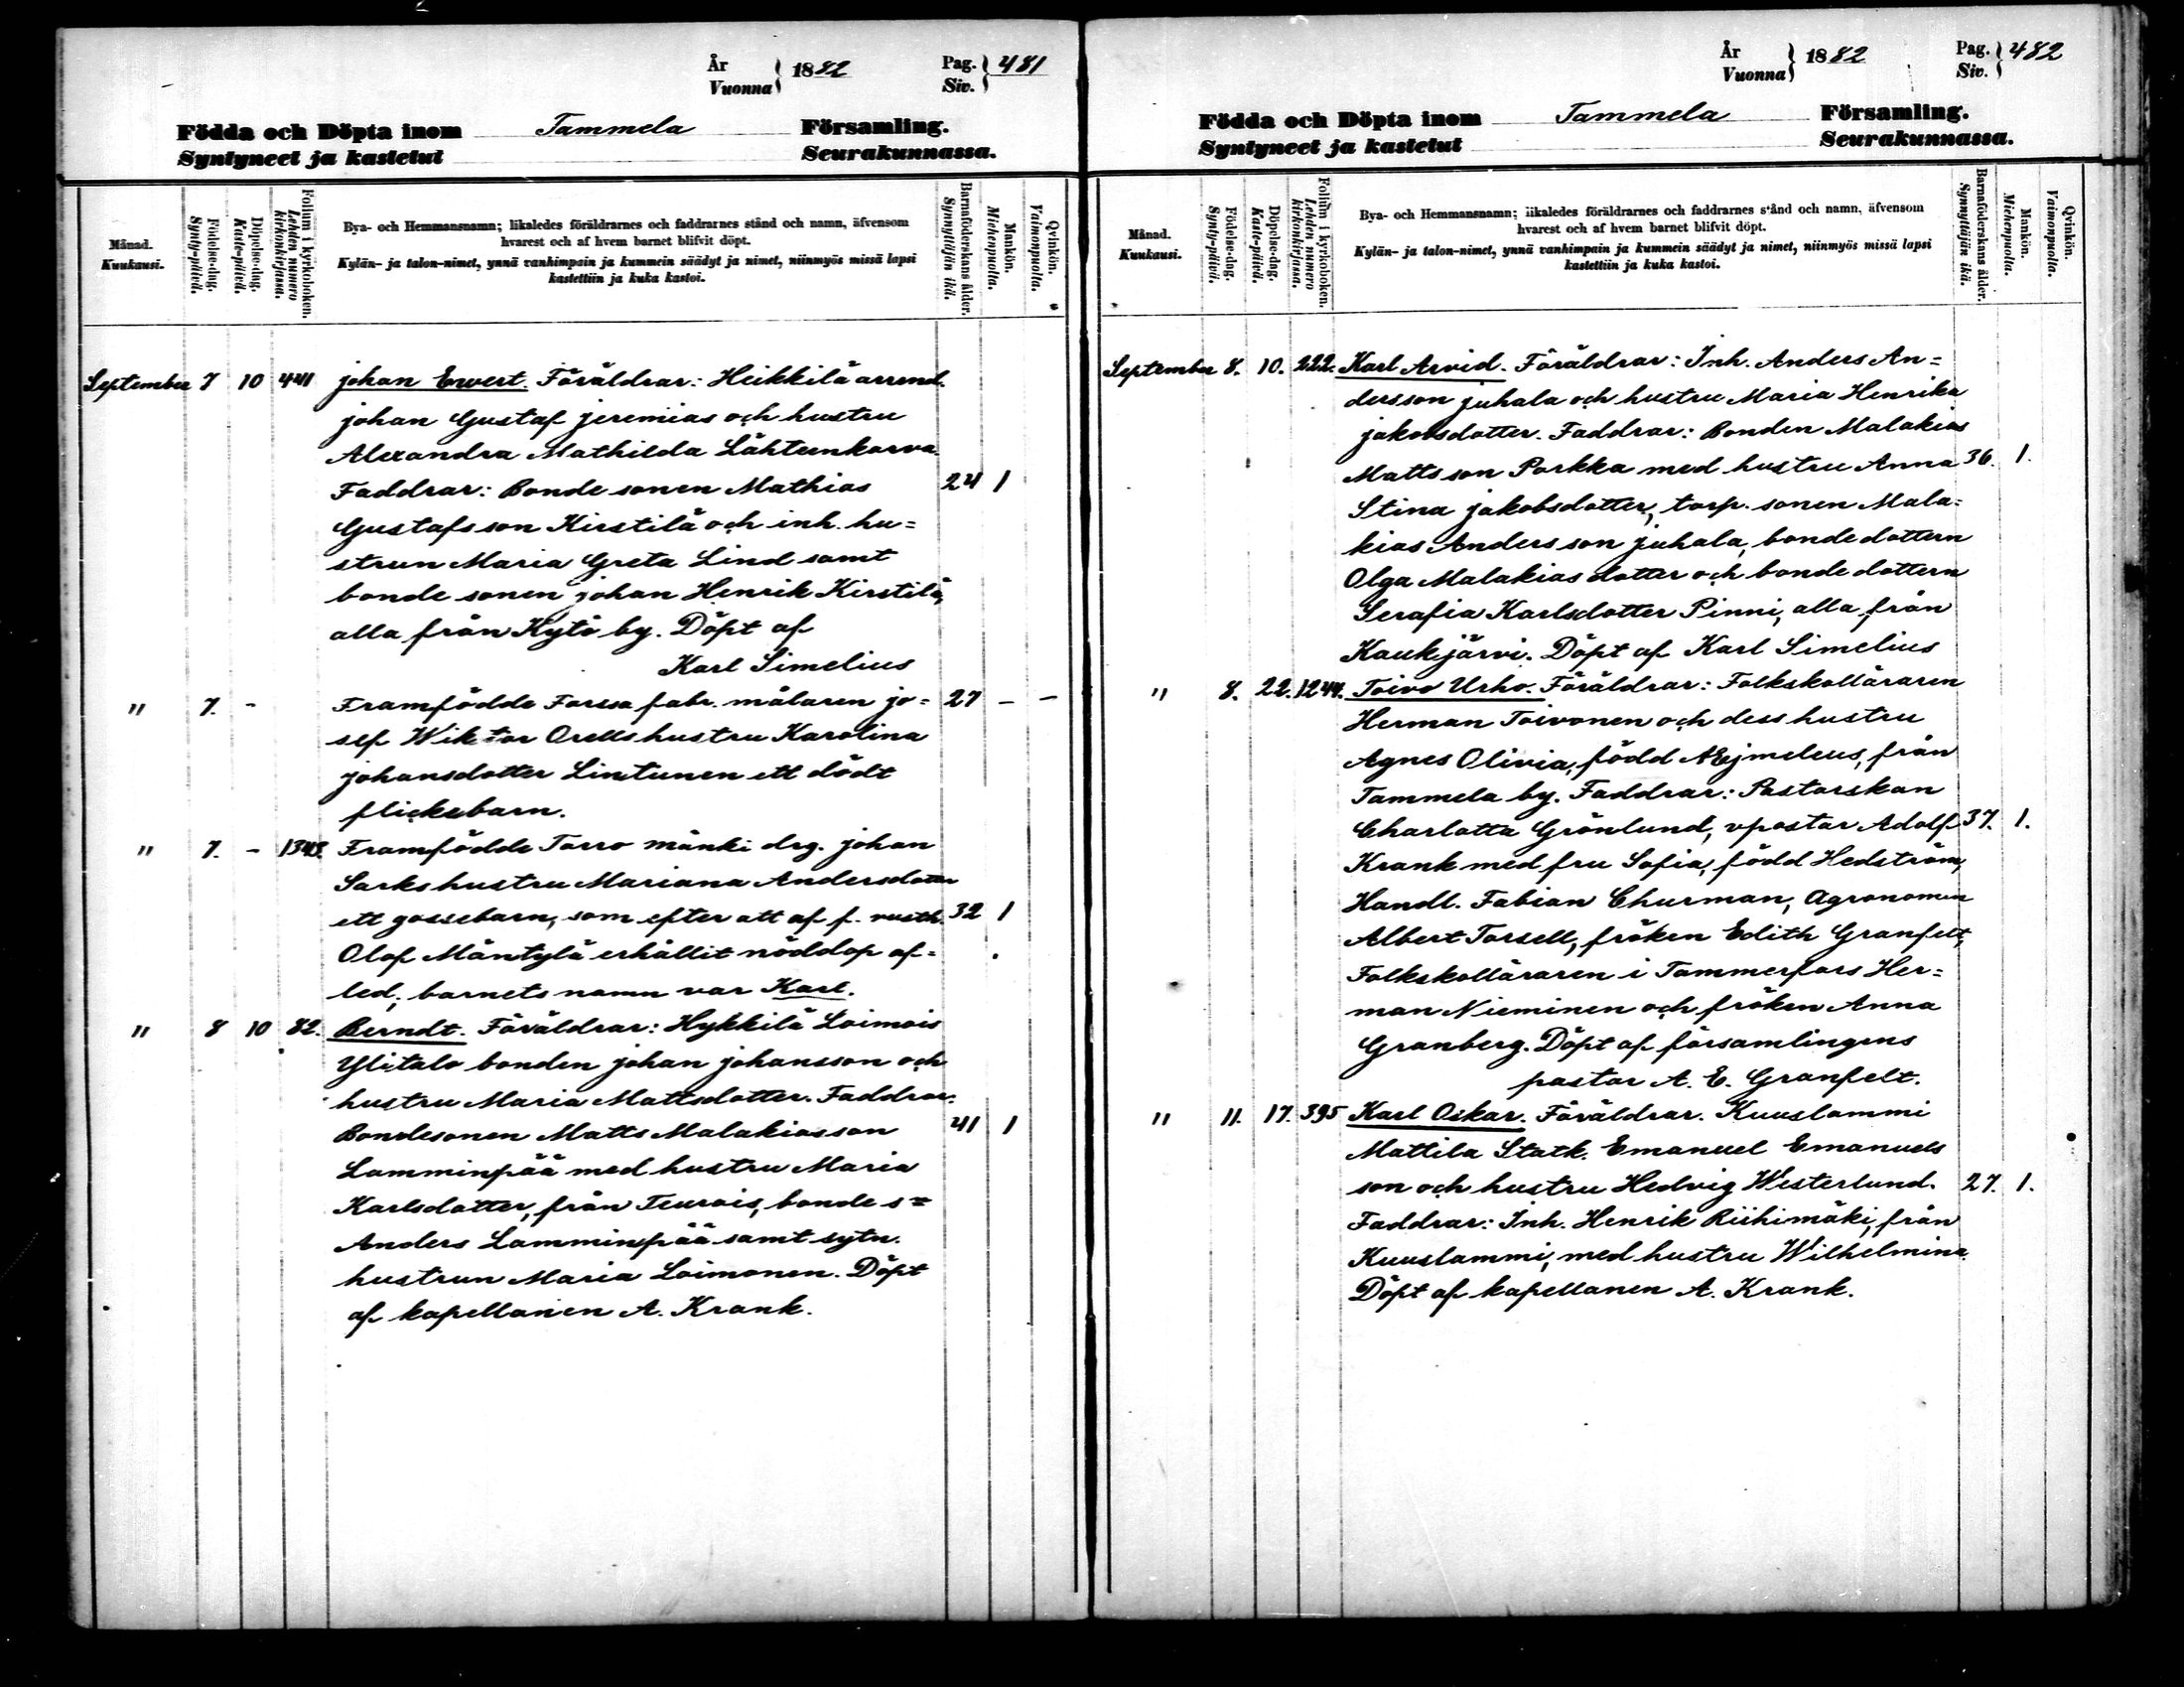 År
Vuonna } 1882
Pag.
Siv. } 481
Födda och Döpta inom Tammela Församling.
Syntyneet ja kastetut Seurakunnassa.
Månad.
Kuukausi.
Födelse-dag.
Synty-päivä.
Döpelse-dag.
Kaste-päivä.
Folium i kyrkoboken.
Lehden numero
kirkonkirjassa.
Bya- och Hemmansnamn; likaledes föräldrarnes och faddrarnes stånd och namn, äfvensom
hvarest och af hvem barnet blifvit döpt.
Kylän- ja talon-nimet, ynnä vanhimpain ja kummein säädyt ja nimet, niinmyös missä lapsi
kastettiin ja kuka kastoi.
Barnaföderskans ålder.
Synnyttäjän ikä.
Mankön.
Miehenpuolta.
Qvinkön.
Vaimonpuolta.
September 7 10 441 johan Ewert. Föräldrar: Heikkilä arrend.
johan Gustaf jeremias och hustru
Alexandra Mathilda Lähteenkorva
Faddrar: Bonde sonen Mathias 24 1
Gustafsson Kirstilä och inh. hu=
strun Maria Greta Lind samt
bonde sonen johan Henrik Kirstilä,
alla från Kytö by. Döpt af
Karl Simelius
" 7. - Framfödde Forssa fabr. målaren jo= 27 - -
sef Wiktor Orells hustru Karolina
johansdotter Lintunen ett dödt
flickebarn.
" 7. - 1343. Framfödde Torro mänki drg. johan
Sarks hustru Mariana Andersdotter
ett gossebarn, som efter att af f. rusth. 32 1
Olof Mäntylä erhållit nöddop af=
led; barnets namn var Karl.
" 8 10 82. Berndt. Föräldrar: Hykkilä Loimois
Ylitalo bonden johan johansson och
hustru Maria Mattsdotter. Faddrar.
Bondesonen Matts Malakiasson 41 1
Lamminpää med hustru Maria
Karlsdotter, från Teurois, bonde s=
Anders Lamminpää samt sytn.
hustrun Maria Loimonen. Döpt
af kapellanen A. Krank.
År
Vuonna } 1882
Pag.
Siv. } 482
Födda och Döpta inom Tammela Församling.
Syntyneet ja kastetut Seurakunnassa.
Månad.
Kuukausi.
Födelse-dag.
Synty-päivä.
Döpelse-dag.
Kaste-päivä.
Folium i kyrkoboken.
Lehden numero
kirkonkirjassa.
Bya- och Hemmansnamn; likaledes föräldrarnes och faddrarnes stånd och namn, äfvensom
hvarest och af hvem barnet blifvit döpt.
Kylän- ja talon-nimet, ynnä vanhimpain ja kummein säädyt ja nimet, niinmyös missä lapsi
kastettiin ja kuka kastoi.
Barnaföderskans ålder.
Synnyttäjän ikä.
Mankön.
Miehenpuolta.
Qvinkön.
Vaimonpuolta.
September 8. 10. 222. Karl Arvid. Föräldrar: Inh. Anders An=
dersson juhala och hustru Maria Henrika
jakobsdotter. Faddrar: Bonden Malakias
Mattsson Porkka med hustru Anna 36. 1.
Stina jakobsdotter, torp. sonen Mala=
kias Andersson juhala, bondedottern
Olga Malakiasdotter och bonde dottern
Serafia Karlsdotter Pinni, alla från
Kaukjärvi. Döpt af Karl Simelius
" 8. 22. 1244. Toivo Urho. Föräldrar: Folkskolläraren
Herman Toivonen och dess hustru
Agnes Olivia, född Nejmeleus, från
Tammela by. Faddrar: Pastorskan
Charlotta Grönlund, vpastor Adolf 37. 1.
Krank med fru Sofia, född Hedström,
Handl. Fabian Churman, Agronomen
Albert Torsell, fröken Edith Granfelt,
Folkskolläraren i Tammerfors Her=
man Nieminen och fröken Anna
Granberg. Döpt af församlingens
pastor A. E. Granfelt.
" 11. 17. 395 Karl Oskar. Föräldrar. Kuuslammi
Mattila Statk. Emanuel Emanuels
son och hustru Hedvig Westerlund. 27. 1.
Faddrar: Inh. Henrik Riihimäki, från
Kuuslammi, med hustru Wilhelmina.
Döpt af kapellanen A. Krank.